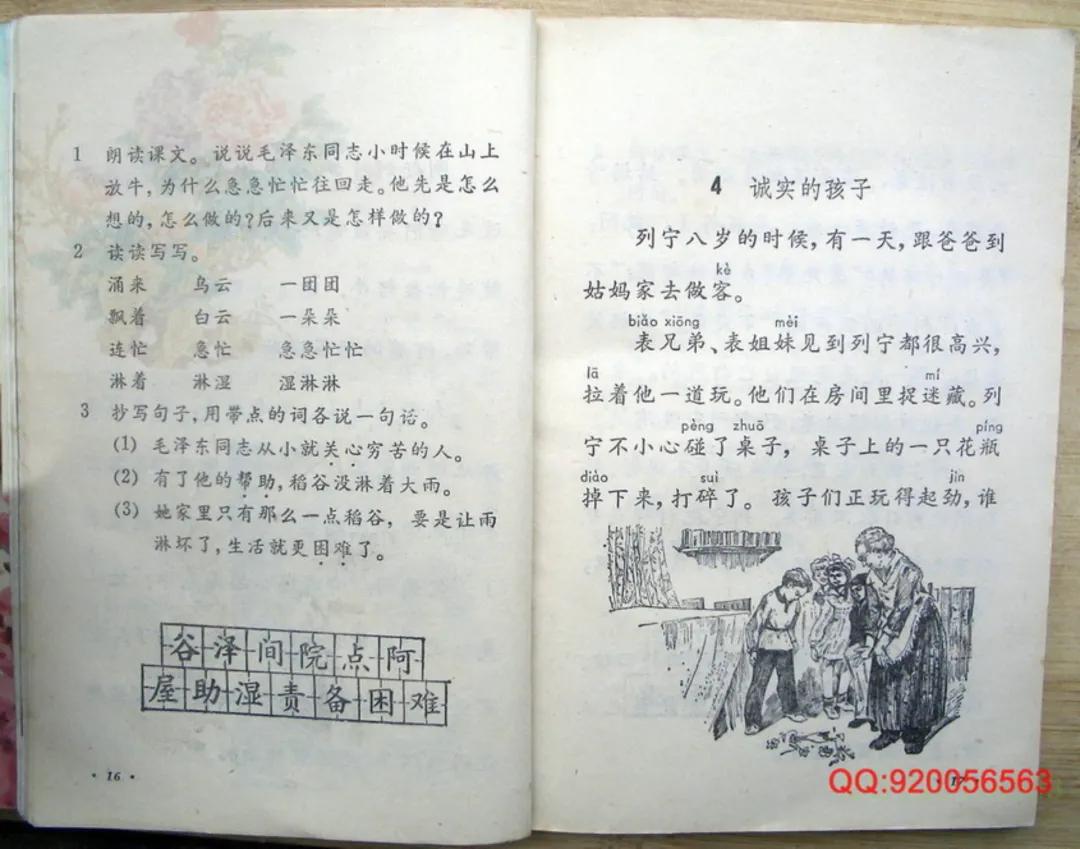 1 朗读课文。说说毛泽东同志小时候在山上
放牛，为什么急急忙忙往回走。他先是怎么
想的，怎么做的？后来又是怎样做的？
2 读读写写。
涌来 乌云 一团团
飘着 白云 一朵朵
连忙 急忙 急急忙忙
淋着 淋湿 湿淋淋
3 抄写句子，用带点的词各说一句话。
(1) 毛泽东同志从小就关心穷苦的人。
(2) 有了他的帮助，稻谷没淋着大雨。
(3) 她家里只有那么一点稻谷，要是让雨
淋坏了，生活就更困难了。
谷泽间院点阿
屋助湿责备困难
·16·
4 诚实的孩子
列宁八岁的时候，有一天，跟爸爸到
kè
姑妈家去做客。
biǎo xiōng mèi
表兄弟、表姐妹见到列宁都很高兴，
lā mí
拉着他一道玩。他们在房间里捉迷藏。列
pèng zhuō píng
宁不小心碰了桌子，桌子上的一只花瓶
diào suì jìn
掉下来，打碎了。孩子们正玩得起劲，谁
QQ:920056563